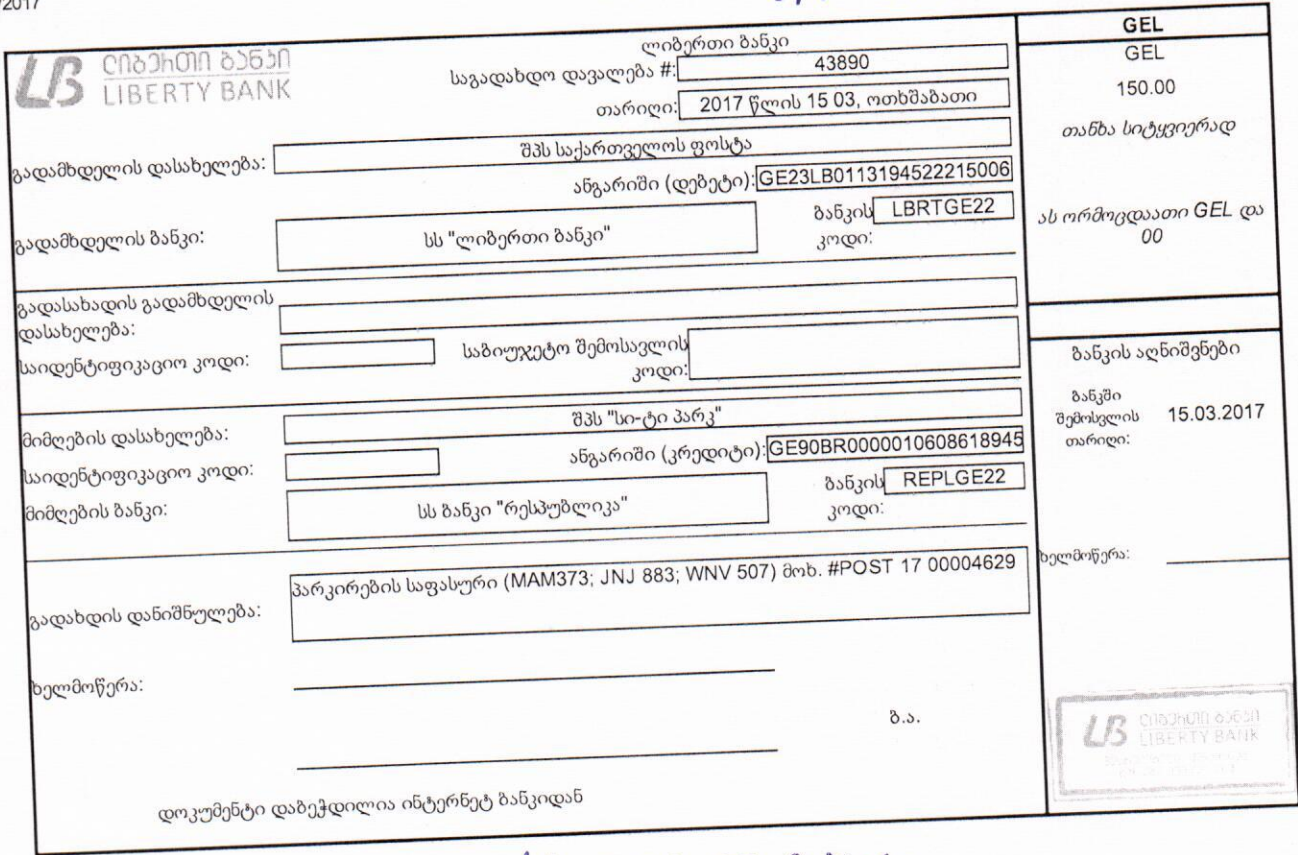 /2017
ლიბერთი ბანკი
LIBERTY BANK
ლიბერთი ბანკი
საგადახდო დავალება #: 43890
თარიღი: 2017 წლის 15 03, ოთხშაბათი
გადამხდელის დასახელება: შპს საქართველოს ფოსტა
ანგარიში (დებეტი): GE23LB0113194522215006
გადამხდელის ბანკი: სს "ლიბერთი ბანკი" ბანკის კოდი: LBRTGE22
გადასახადის გადამხდელის
დასახელება:
საიდენტიფიკაციო კოდი: საბიუჯეტო შემოსავლის
კოდი:
მიმღების დასახელება: შპს "სი-ტი პარკ"
საიდენტიფიკაციო კოდი: ანგარიში (კრედიტი): GE90BR0000010608618945
მიმღების ბანკი: სს ბანკი "რესპუბლიკა" ბანკის კოდი: REPLGE22
გადახდის დანიშნულება: პარკირების საფასური (MAM373; JNJ 883; WNV 507) მოხ. #POST 17 00004629
ხელმოწერა:
ბ.ა.
დოკუმენტი დაბეჭდილია ინტერნეტ ბანკიდან
GEL
GEL
150.00
თანხა სიტყვიერად
ას ორმოცდაათი GEL და
00
ბანკის აღნიშვნები
ბანკში
შემოსვლის 15.03.2017
თარიღი:
ხელმოწერა:
ლიბერთი ბანკი
LIBERTY BANK